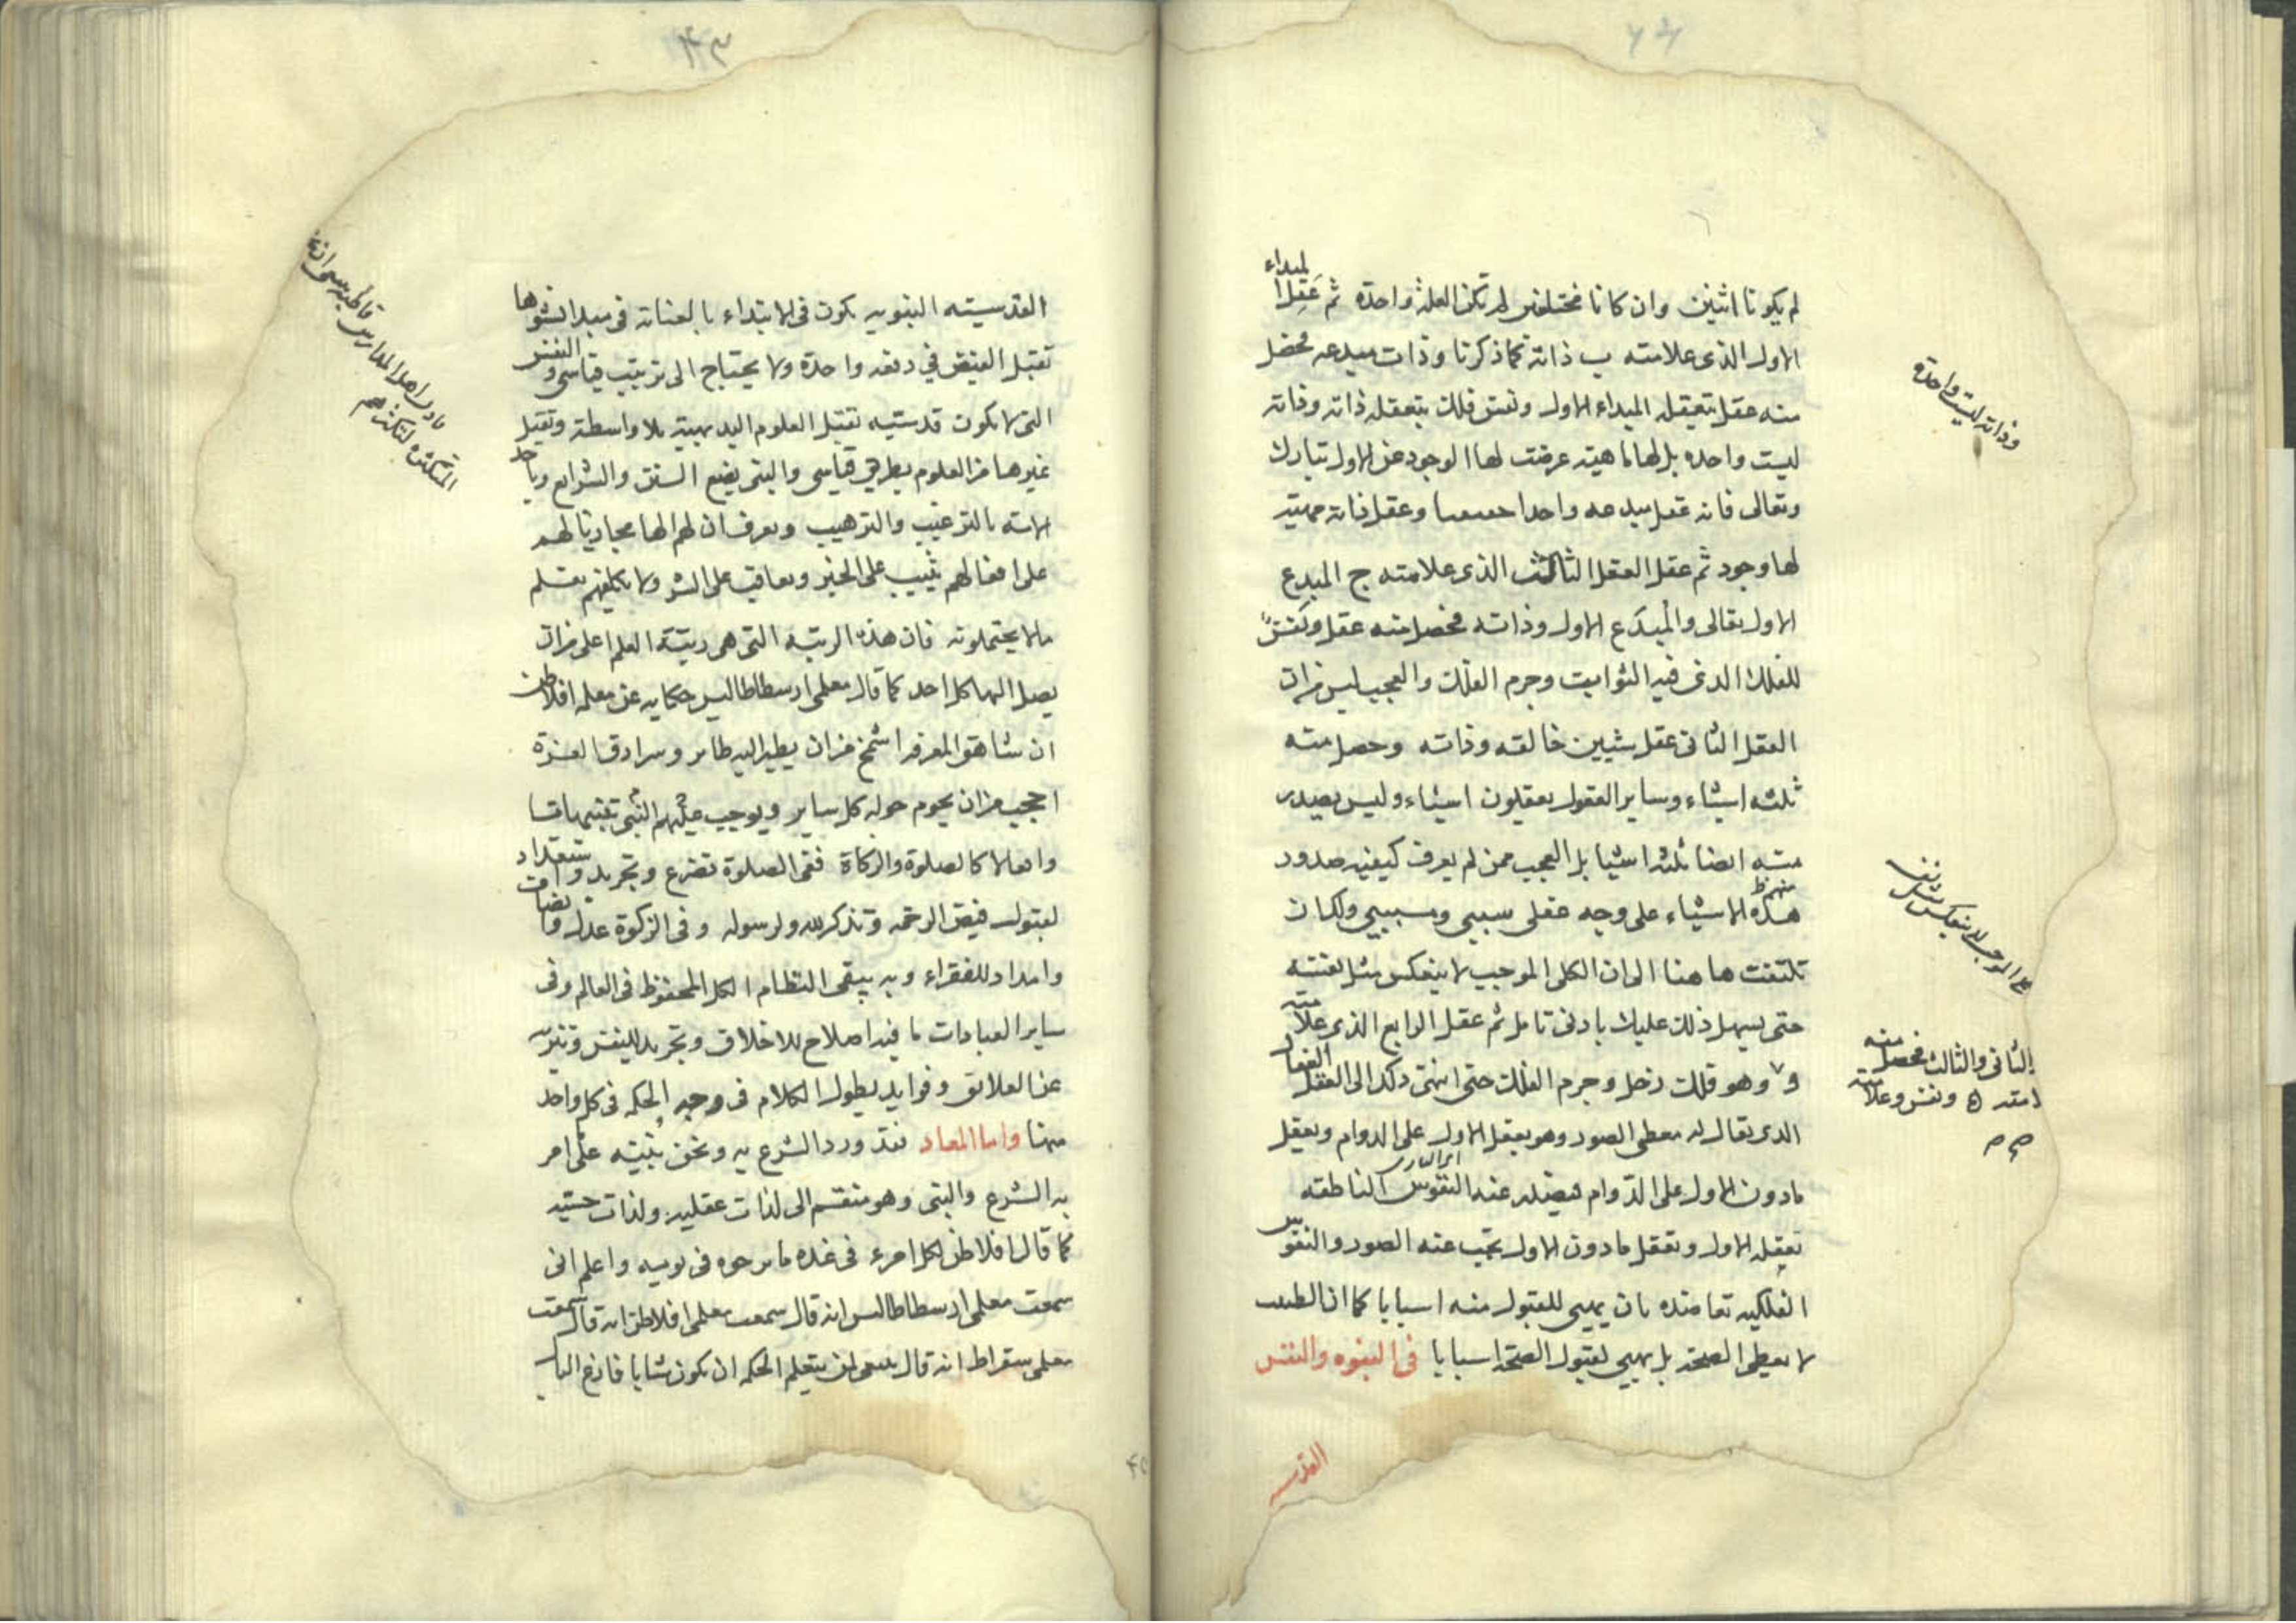 لم يكونا اثنين وان كانا مختلفين لم تكن العلة واحدة ثم عقل المبداء
الاول الذى علامته ب ذاته كما ذكرنا وذات مبدعه فحصل
منه عقل بتعقله المبداء الاول ونفس فلك بتعقله ذاته وذاته
ليست واحده بل لها ماهيته عرضت لها الوجود عن الاول تبارك
وتعالى فانه عقل مبدعه واحدا وعقل ذاته مهيته
لها وجود ثم عقل العقل الثالث الذى علامته ج المبدع
الاول تعالى والمُبدَع الاول وذاته فحصل منه عقل ونفسٌ
للفلك الذى فيه الثوابت وجرم الفلك والعجب ليس من ان
العقل الثانى عقل شيئين خالقه وذاته وحصل منه
ثلثه اشياء وساير العقول يعقلون اشياء وليس يصدر
منه ايضا ثلثه اشيا بل العجب ممن لم يعرف كيفيه صدور
هذه الاشياء على وجه عقلى سببى ومسببى ولكان
تلتفت هاهنا الى ان الكلى الموجب لا ينعكس مثل نفسه
حتى يسهل ذلك عليك بادنى تامل ثم عقل الرابع الذى علامته
و وهو فلك زحل وجرم الفلك حتى انتهى ذلك الى العقل الفعال
الذى يقال له معطى الصور وهو يعقل الاول على الدوام ويعقل
مادون الاول على الدوام فيصدر عنه النفوس الناطقه
بعقله الاول وبعقل مادون الاول يجب عنه الصور والنفوس
الفلكيه تعاضده بان يهيى للقبول منه اسبابا كما ان الطبيب
لا يعطى الصحة بل يهيى لقبول الصحة اسبابا فى النبوه والنفس
القدسيه
وذاته ليست واحدة
الثانى والثالث فحصل منه
القدسيته النبويه يكون فى الابتداء بالعناية فى مبدا نشوها
تقبل الفيض في دفعه واحدة ولا يحتاج الى ترتيب قياسى والنفس
التى لا يكون قدسيته تقبل العلوم البديهية بلا واسطة وتقبل
غيرها من العلوم بطريق قياسى والنبى يضع السنن والشرايع وياخذ
الامته بالترغيب والترهيب ويعرف ان لهم الها مجازيا لهم
على افعالهم يثيب على الخير ويعاقب على الشر ولا يكلفهم بعلم
مالا يحتملونه فان هذه الرتبه التى هى رتبة العلم اعلى من ان
يصل اليها كل احد كما قال معلمى ارسطاطاليس حكايه عن معلمه افلاطن
ان شاهق المعرفه اشمخ من ان يطير اليه طاير وسرادق العزة
احجب من ان يحوم حوله كل ساير ويوجب عليهم النبى تنبيهات
وافعالا كالصلوة والزكاة ففى الصلوة تضرع وتجريد واستعداد
لقبول فيض الرحمه وتذكر لله ولرسوله وفى الزكوة عدل وانصاف
وامداد للفقراء وبه يبقى النظام الكل المحفوظ فى العالم وفى
ساير العبادات ما فيه اصلاح للاخلاق وتجريد للنفس وتنزيه
عن العلايق وفوايد يطول الكلام فى وجه الحكمه فى كل واحد
منها واما المعاد فقد ورد الشرع به ونحن نبنيه على امر
به الشرع والنبى وهو منقسم الى لذات عقليه ولذات حسيه
كما قال افلاطن لكل امرء فى غده ما يرجوه فى يوميه واعلم انى
سمعت معلمى ارسطاطاليس انه قال سمعت معلمى افلاطن انه قال سمعت
معلمى سقراط انه قال ينبغى لمن يتعلم الحكمه ان يكون شابا فارغ البال